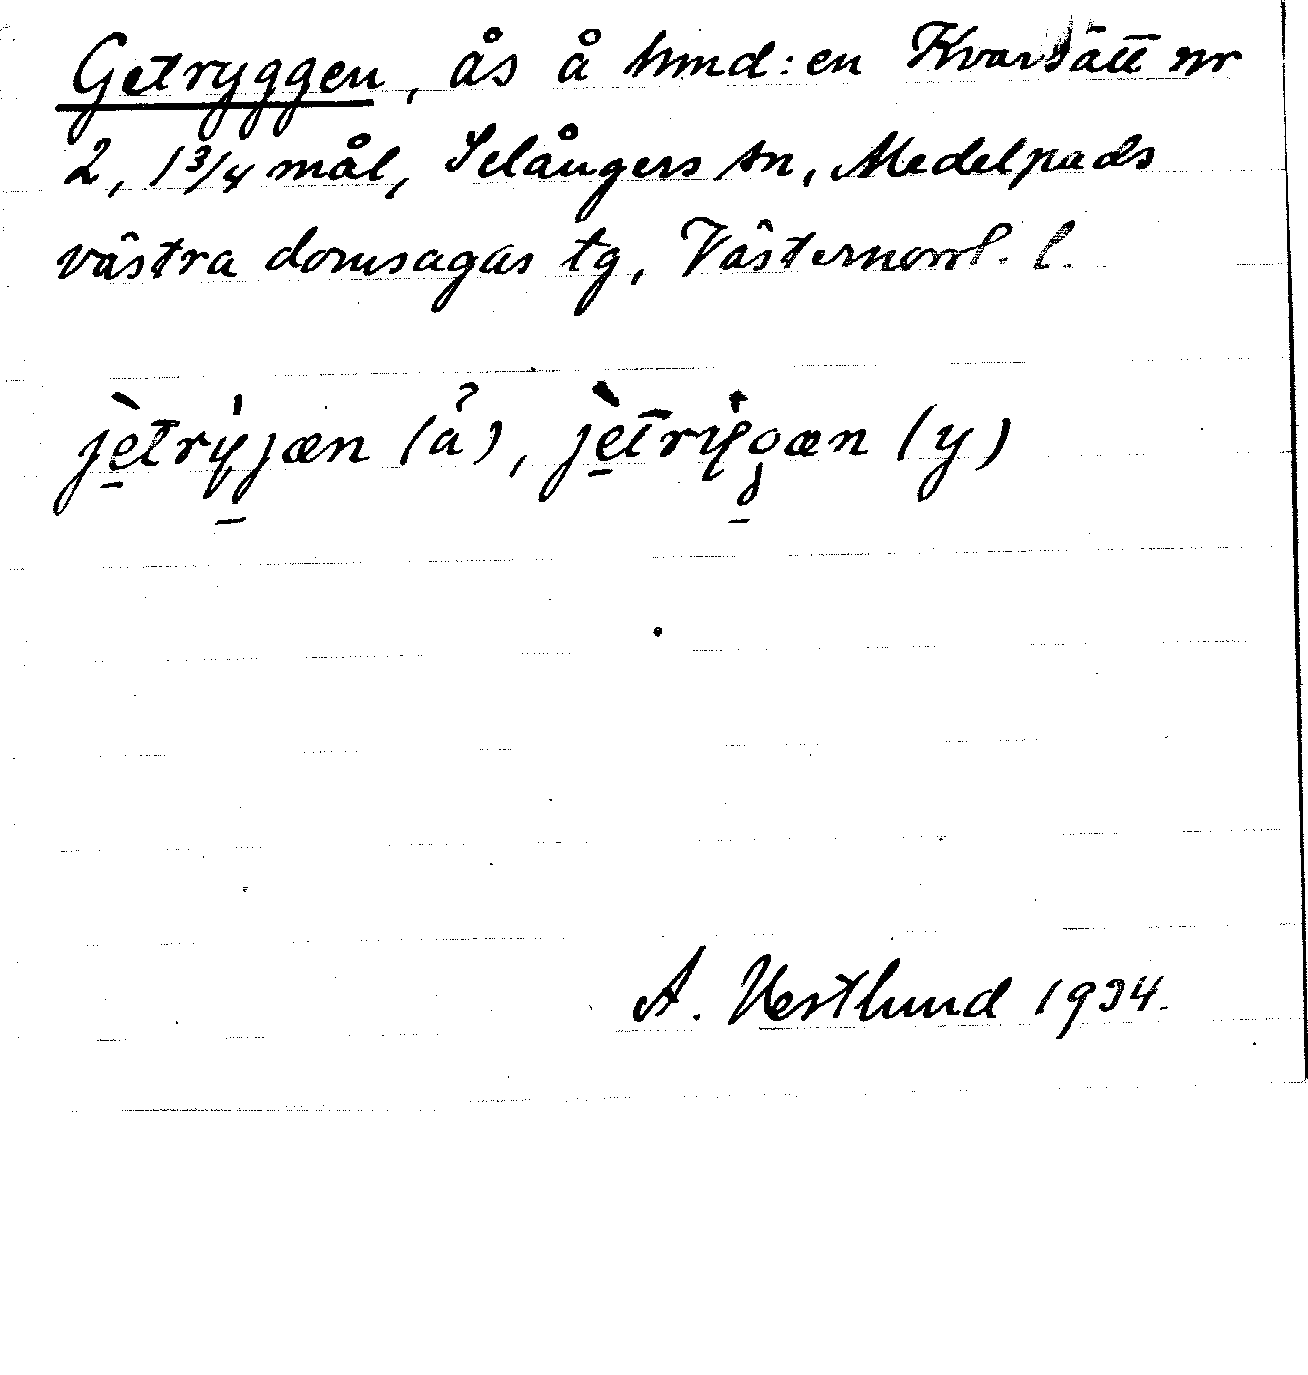 Getryggen, ås å hmd:en Kvarsätt nr
2, 1 3/4 mål, Selångers sn, Medelpads
västra domsagas tg, Västernorrl. l.
jètry̍jæn (å), jètry̍gæn (y)
A. Vestlund 1934.